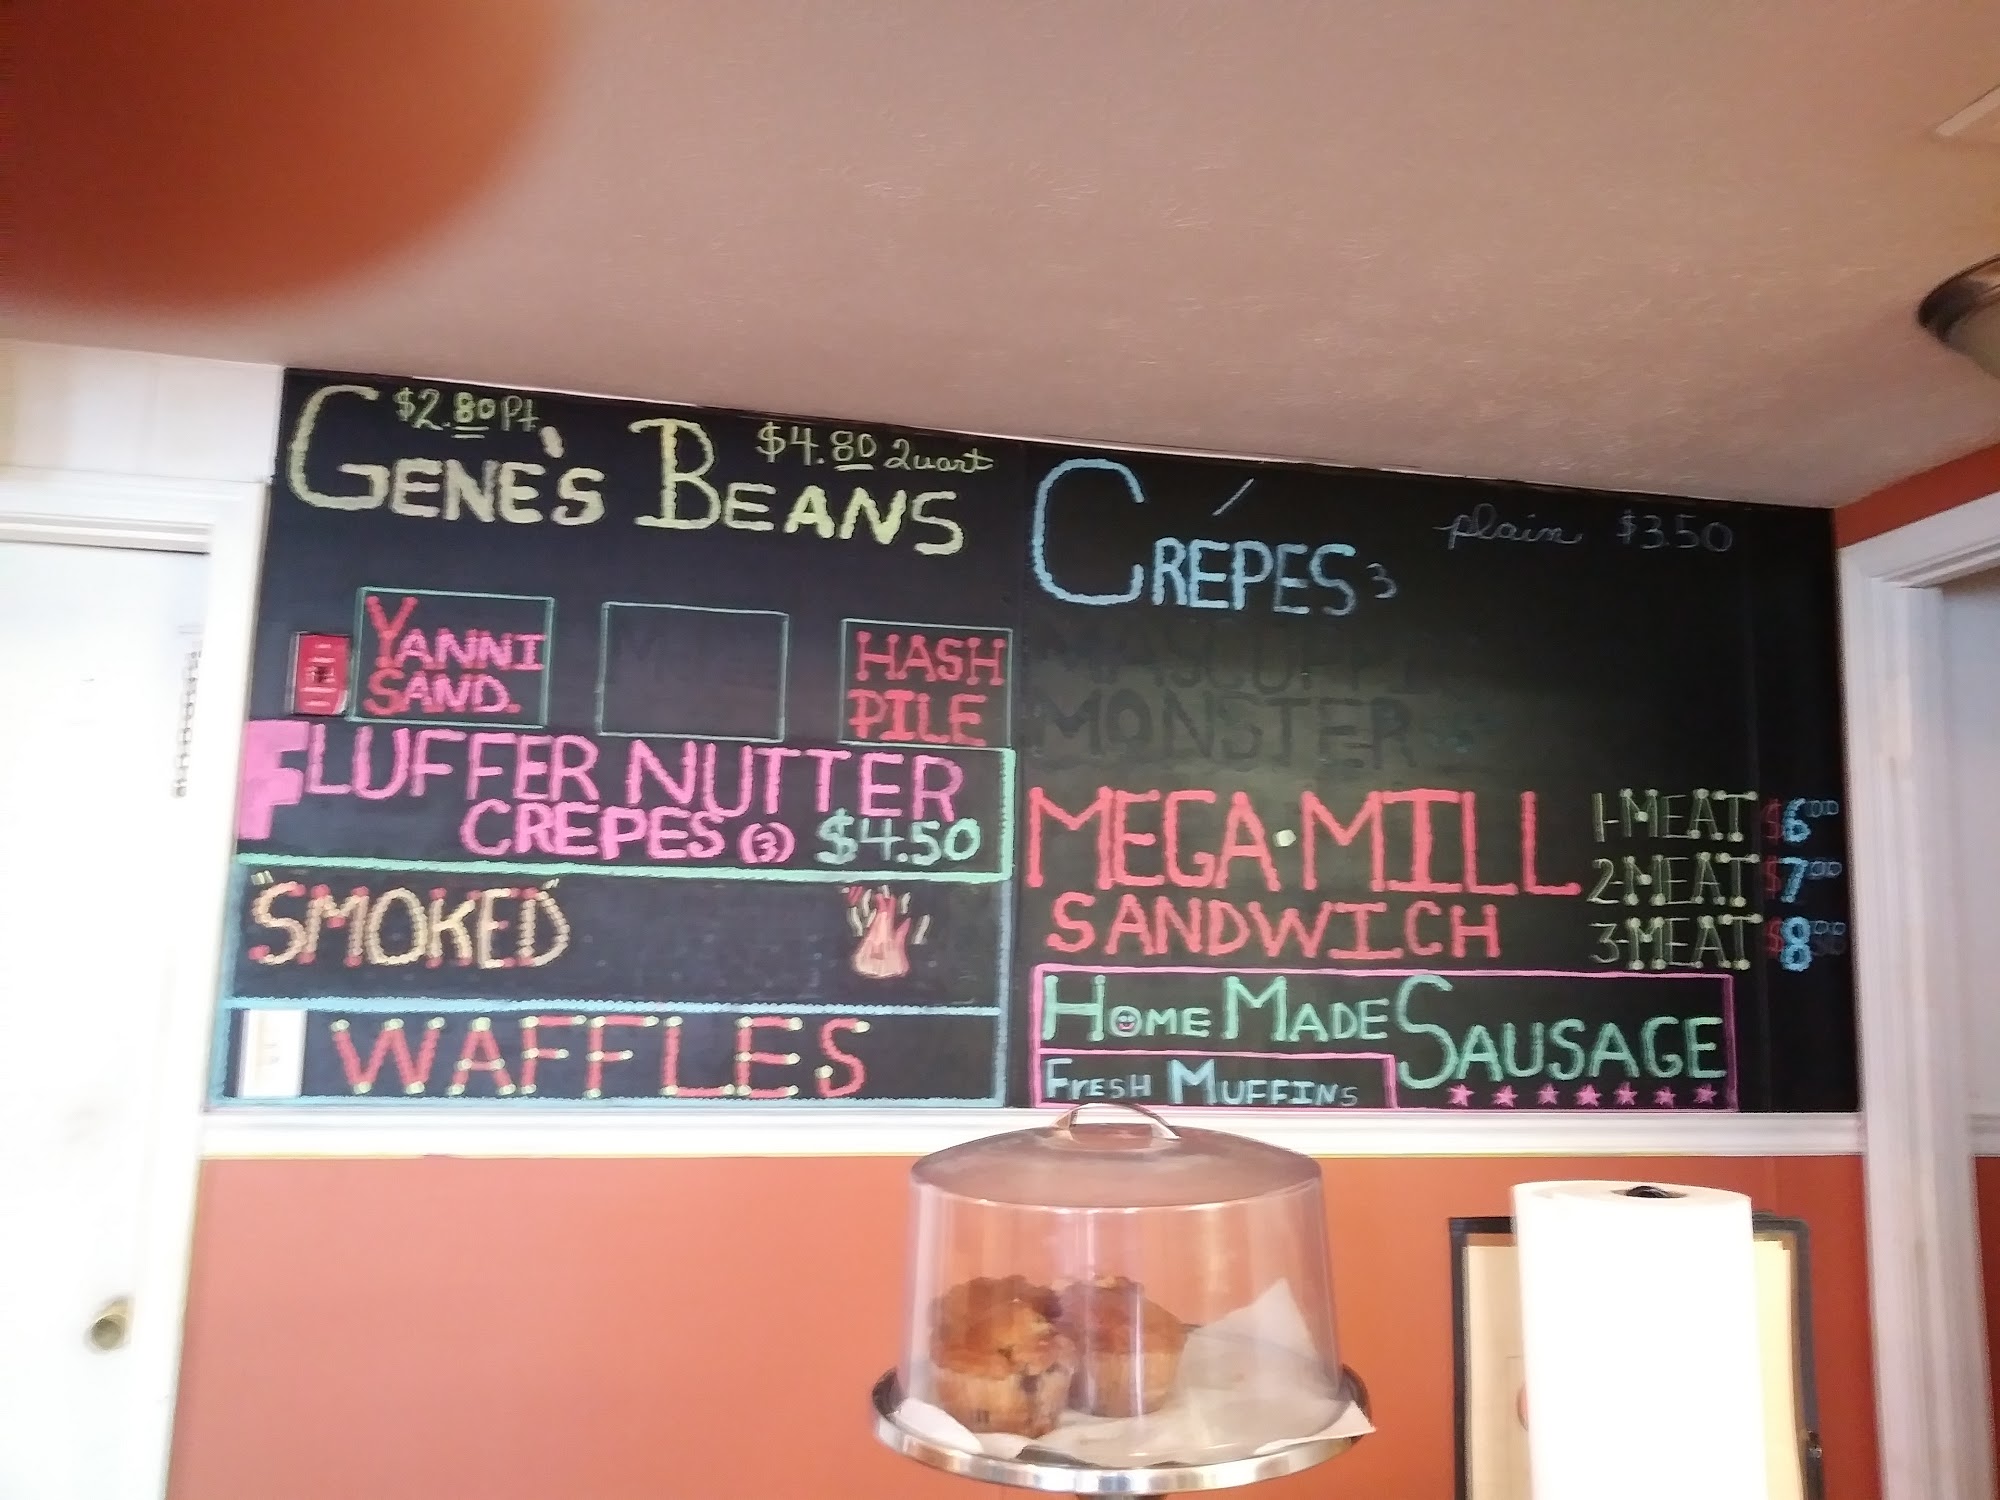 $2.80 Pt.
$4.80 Quart
GENE'S BEANS
YANNI
SAND.
HASH
PILE
FLUFFER NUTTER
CREPES (3) $4.50
"SMOKED"
WAFFLES
plain $3.50
CREPES 3
MONSTER
MEGA·MILL
SANDWICH
1-MEAT $6.00
2-MEAT $7.00
3-MEAT $8.00
HOME MADE SAUSAGE
FRESH MUFFINS